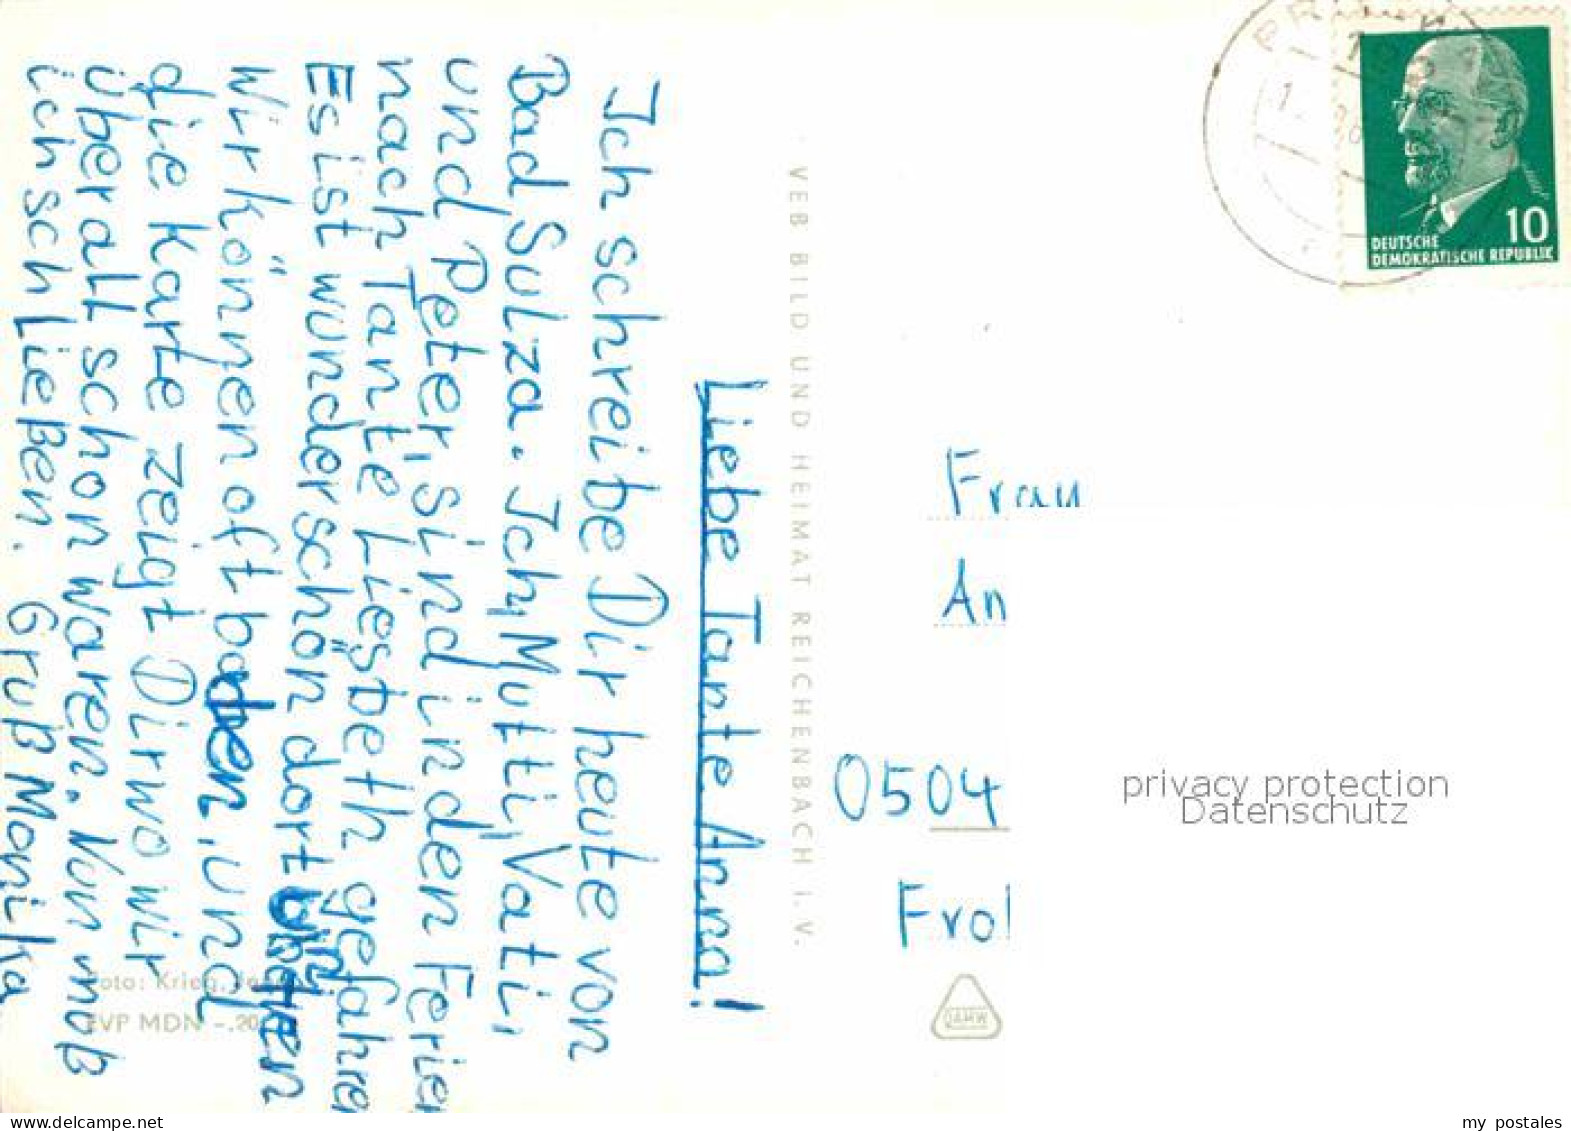 Liebe Tante Anna!
Ich schreibe Dir heute von
Bad Sulza. Ich, Mutti, Vati,
und Peter, sind in den Ferien
nach Tante Liesbeth gefahren
Es ist wunderschön dort
Wir können oft baden, und
die Karte zeigt Dir wo wir
überall schon waren. Nun muß
ich schließen. Gruß Monika
VEB BILD UND HEIMAT REICHENBACH i. V.
Foto: Krieg,
EVP MDN -.20
10
DEUTSCHE
DEMOKRATISCHE REPUBLIK
Frau
An
0504
Fro
privacy protection
Datenschutz
www.delcampe.net
my_postales